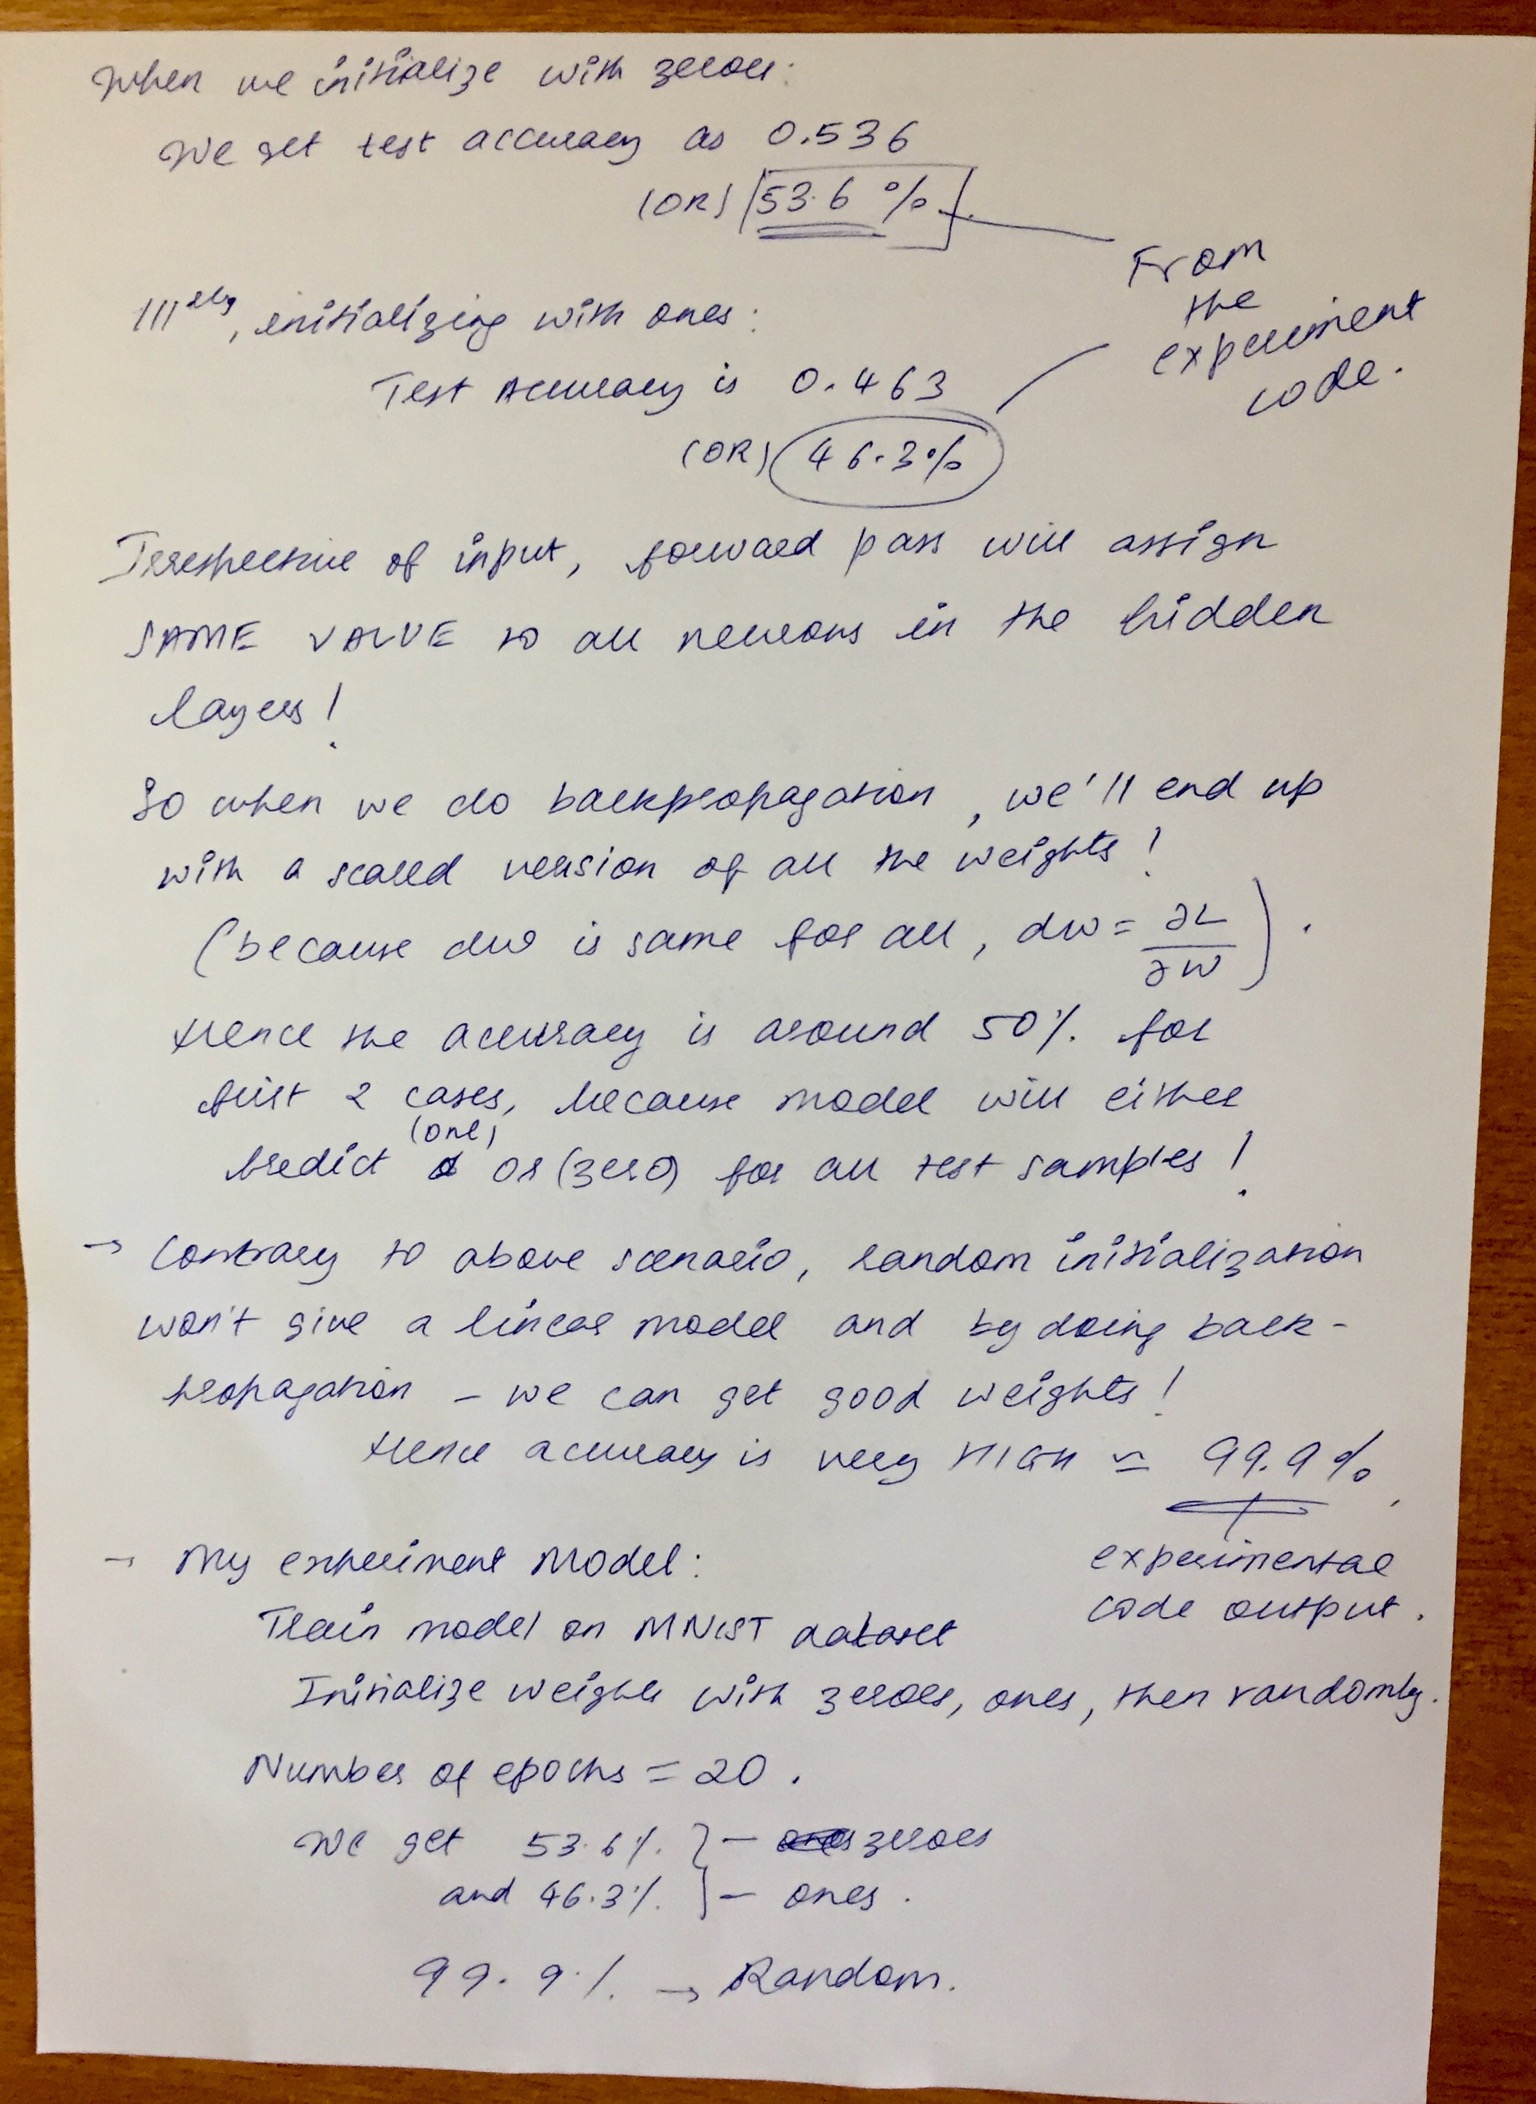 When we initialize with zeroes:
We get test accuracy as 0.536
(OR) [53.6 %]
From
the
experiment
code.
|||elly, initializing with ones:
Test Accuracy is 0.463
(OR) 46.3%
Irrespective of input, forward pass will assign
SAME VALUE to all neurons in the hidden
layers!
So when we do backpropagation, we'll end up
with a scaled version of all the weights!
(because dw is same for all, dw = ∂L/∂W).
Hence the accuracy is around 50% for
first 2 cases, because model will either
predict (one) or (zero) for all test samples!
→ Contrary to above scenario, random initialization
won't give a linear model and by doing back-
propagation - we can get good weights!
Hence accuracy is very HIGH ≃ 99.9%,
experimental
code output.
→ My experiment Model:
Train model on MNIST dataset
Initialize weights with zeroes, ones, then randomly.
Number of epochs = 20.
We get 53.6% } - zeroes
and 46.3% } - ones.
99.9% → Random.